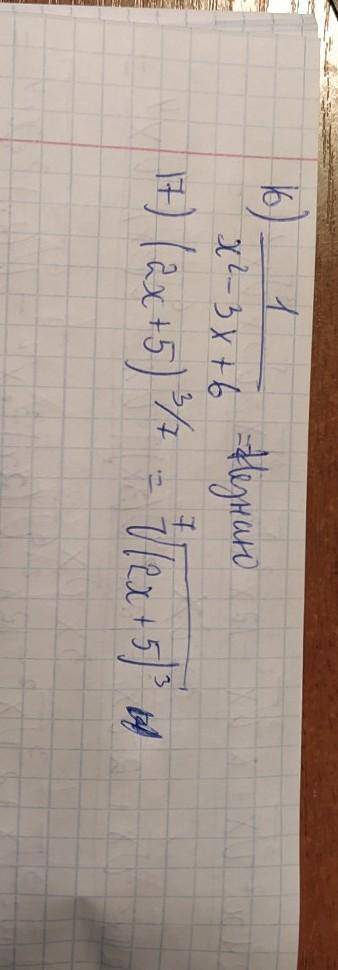 16) 1/(x² - 3x + 6) = Не знаю
17) (2x + 5)^3/7 = ⁷√(2x + 5)³